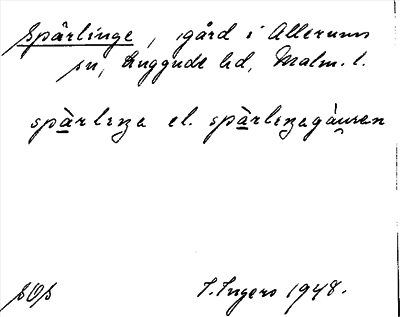 Spärlinge, gård i Allerums
sn, Luggude hd, Malm. l.
spàrlıŋa el. spàrlıŋagåu̯ren
SOS
I. Ingers 1948.